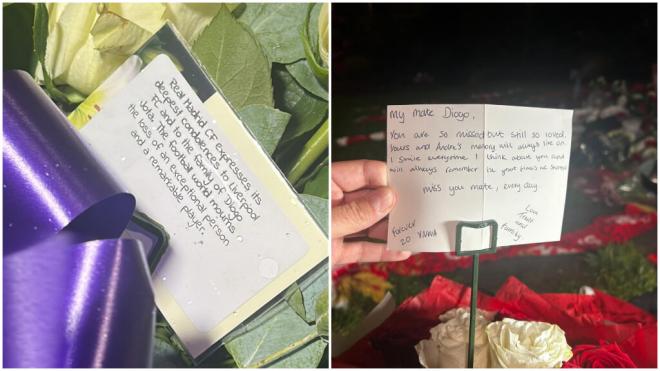 Real Madrid CF expresses its
deepest condolences to Liverpool
FC and to the family of Diogo
Jota. The football world mourns
the loss of an exceptional person
and a remarkable player.
My mate Diogo,
You are so missed but still so loved.
Yours and Andre's memory will always live on.
I smile everytime I think about you and
will always remember the great times we shared
miss you mate, every day.
Love
Trent
and
Family
Forever
20 YNWA